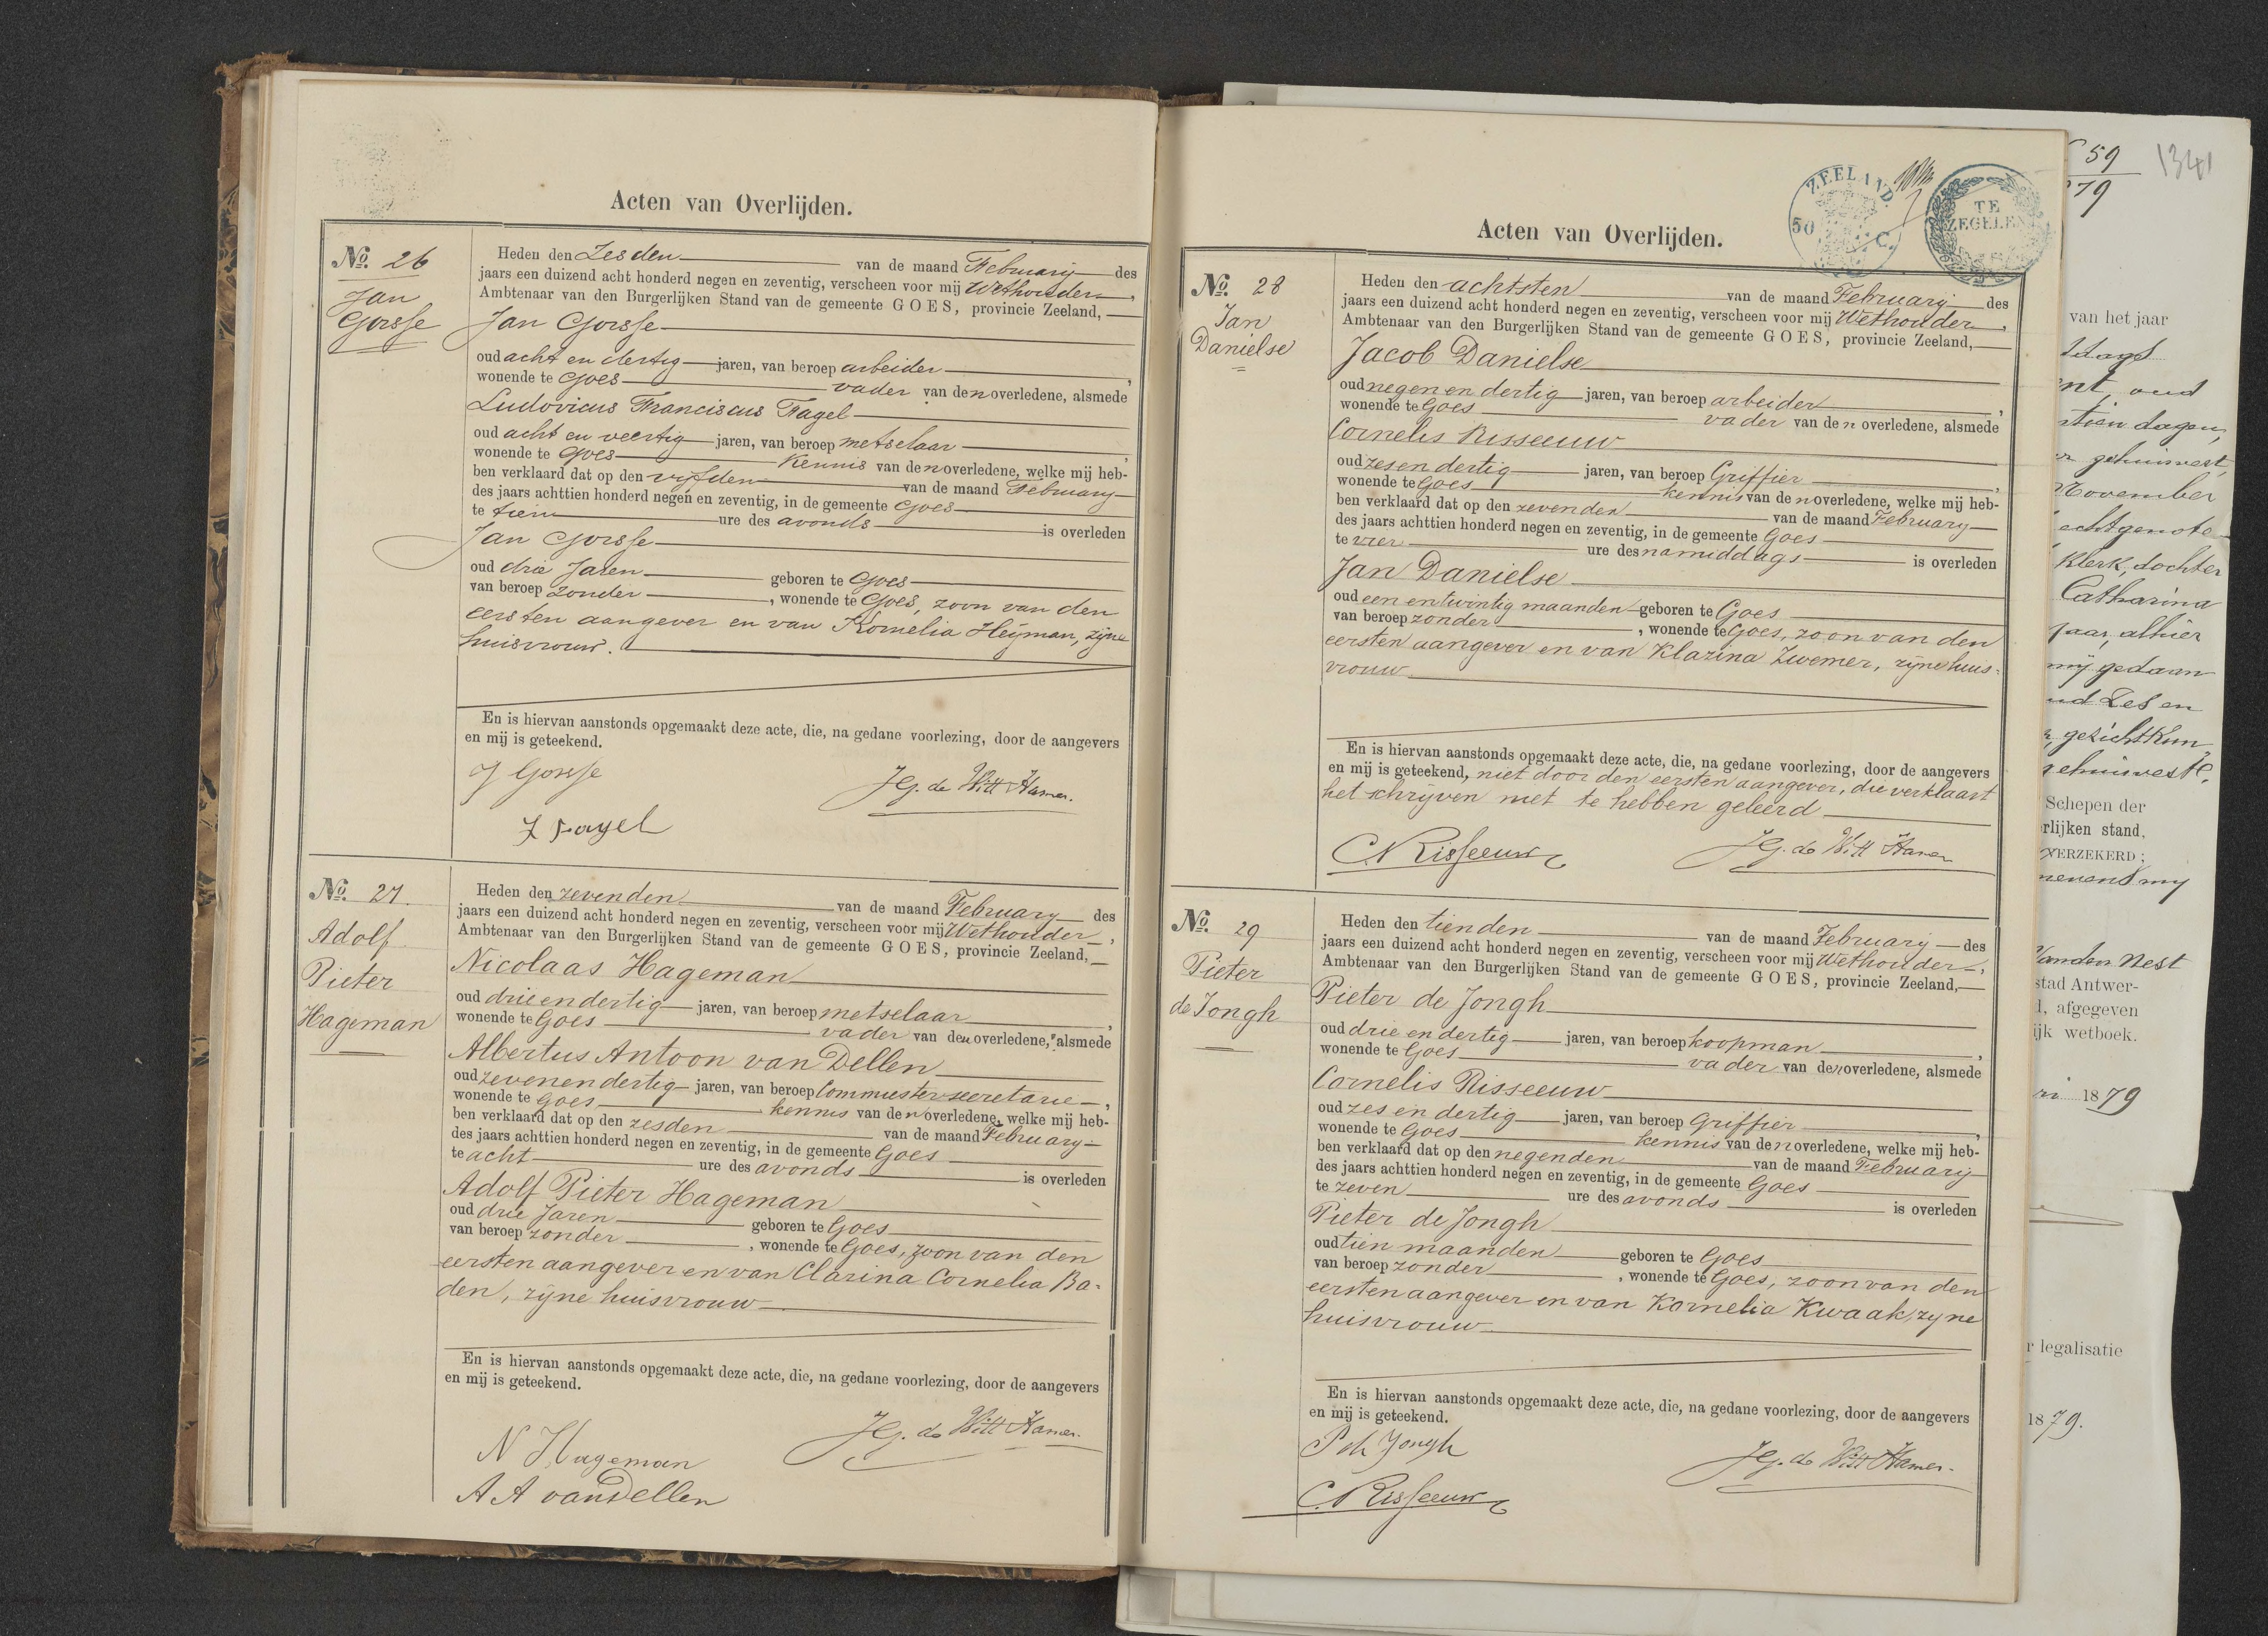 Acten van Overlijden.
No. 26
Jan
Gorsse
Heden den Zesden van de maand February des
jaars een duizend acht honderd negen en zeventig, verscheen voor mij Wethouder,
Ambtenaar van den Burgerlijken Stand van de gemeente GOES, provincie Zeeland,
Jan Gorsse
oud acht en dertig jaren, van beroep arbeider,
wonende te Goes vader van den overledene, alsmede
Ludovicus Franciscus Fagel
oud acht en veertig jaren, van beroep metselaar,
wonende te Goes Kennis van den overledene, welke mij heb-
ben verklaard dat op den vijfden van de maand February
des jaars achttien honderd negen en zeventig, in de gemeente Goes
te tien ure des avonds is overleden
Jan Gorsse
oud drie Jaren geboren te Goes
van beroep zonder, wonende te Goes, zoon van den
eersten aangever en van Kornelia Heijman, zijne
huisvrouw.
En is hiervan aanstonds opgemaakt deze acte, die, na gedane voorlezing, door de aangevers
en mij is geteekend.
J Gorsse
JG. de Witt Hamer.
L Fagel
No. 27.
Adolf
Pieter
Hageman
Heden den zevenden van de maand February des
jaars een duizend acht honderd negen en zeventig, verscheen voor mij Wethouder,
Ambtenaar van den Burgerlijken Stand van de gemeente GOES, provincie Zeeland,
Nicolaas Hageman
oud drie en dertig jaren, van beroep metselaar,
wonende te Goes vader van den overledene, alsmede
Albertus Antoon van Dellen
oud zeven en dertig jaren, van beroep Commies ter secretarie,
wonende te Goes kennis van den overledene, welke mij heb-
ben verklaard dat op den zesden van de maand February
des jaars achttien honderd negen en zeventig, in de gemeente Goes
te acht ure des avonds is overleden
Adolf Pieter Hageman
oud drie Jaren geboren te Goes
van beroep zonder, wonende te Goes, zoon van den
eersten aangever en van Clarina Cornelia Ba-
den, zijne huisvrouw
En is hiervan aanstonds opgemaakt deze acte, die, na gedane voorlezing, door de aangevers
en mij is geteekend.
N Hageman
JG. de Witt Hamer.
A A van Dellen
Acten van Overlijden.
ZEELAND.
50 C.
TE
ZEGELEN
No. 28
Jan
Danielse
Heden den achtsten van de maand February des
jaars een duizend acht honderd negen en zeventig, verscheen voor mij Wethouder,
Ambtenaar van den Burgerlijken Stand van de gemeente GOES, provincie Zeeland,
Jacob Danielse
oud negen en dertig jaren, van beroep arbeider,
wonende te Goes vader van den overledene, alsmede
Cornelis Risseeuw
oud zes en dertig jaren, van beroep Griffier,
wonende te Goes kennis van den overledene, welke mij heb-
ben verklaard dat op den zevenden van de maand February
des jaars achttien honderd negen en zeventig, in de gemeente Goes
te vier ure des namiddags is overleden
Jan Danielse
oud een en twintig maanden geboren te Goes
van beroep zonder, wonende te Goes, zoon van den
eersten aangever en van Klazina Zwemer, zijne huis-
vrouw
En is hiervan aanstonds opgemaakt deze acte, die, na gedane voorlezing, door de aangevers
en mij is geteekend, niet door den eersten aangever, die verklaart
het schrijven niet te hebben geleerd
C Risseeuw
JG. de Witt Hamer
No. 29
Pieter
de Jongh
Heden den tienden van de maand February des
jaars een duizend acht honderd negen en zeventig, verscheen voor mij Wethouder,
Ambtenaar van den Burgerlijken Stand van de gemeente GOES, provincie Zeeland,
Pieter de Jongh
oud drie en dertig jaren, van beroep koopman,
wonende te Goes vader van den overledene, alsmede
Cornelis Risseeuw
oud zes en dertig jaren, van beroep Griffier,
wonende te Goes kennis van den overledene, welke mij heb-
ben verklaard dat op den negenden van de maand February
des jaars achttien honderd negen en zeventig, in de gemeente Goes
te zeven ure des avonds is overleden
Pieter de Jongh
oud tien maanden geboren te Goes
van beroep zonder, wonende te Goes, zoon van den
eersten aangever en van Kornelia Kwaak, zijne
huisvrouw
En is hiervan aanstonds opgemaakt deze acte, die, na gedane voorlezing, door de aangevers
en mij is geteekend.
P de Jongh
JG. de Witt Hamer.
C. Risseeuw
59
79
1341
van het jaar
oud
dagen,
gehuwest,
November
echtgenote
Klerk, dochter
Catharina
Jaar, alhier
mij gedaan
Zes en
Schepen der
rlijken stand,
VERZEKERD;
nevens mij
Vanden Nest
stad Antwer-
d, afgegeven
ijk wetboek.
ri 1879
r legalisatie
1879.